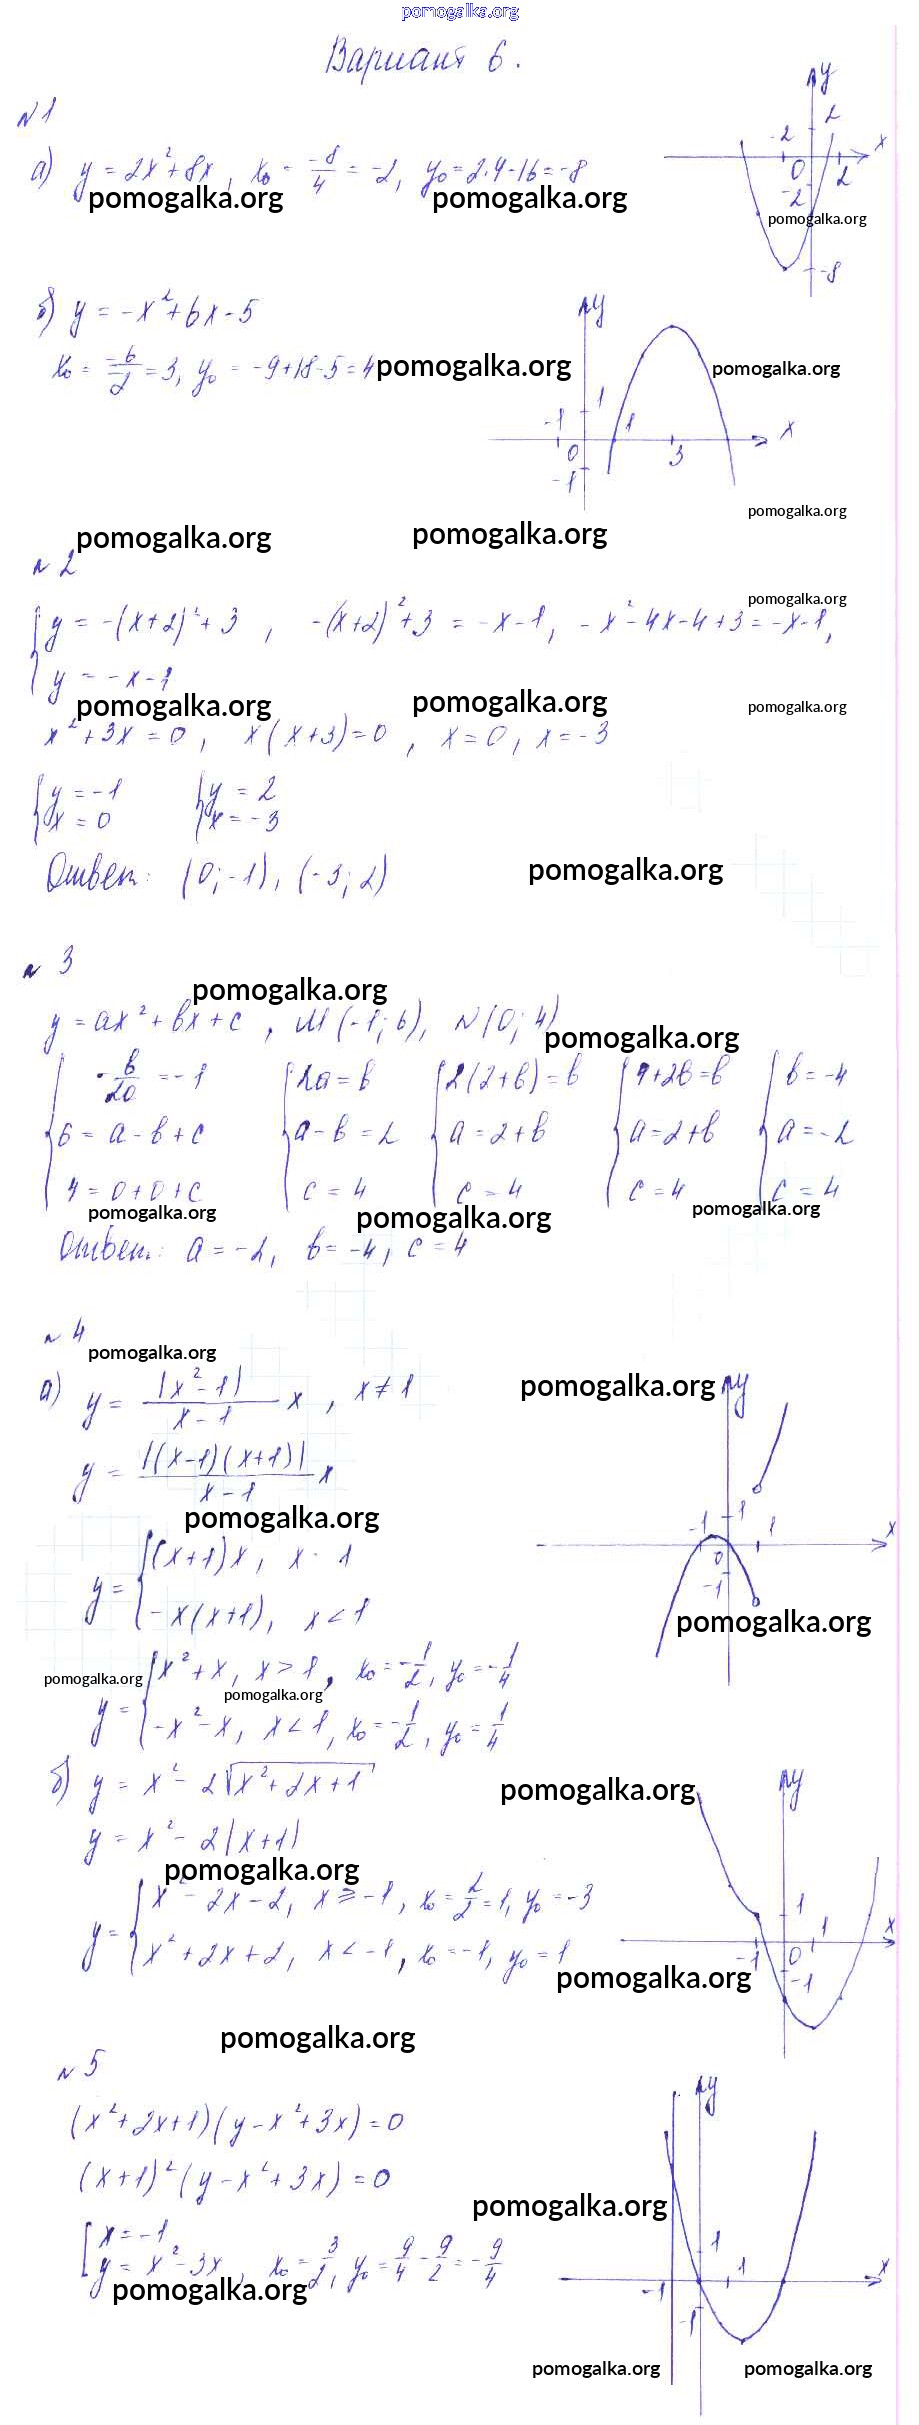 pomogalka.org
Вариант 6.
№1
а) y = 2x²+8x, x₀ = -8/4 = -2, y₀ = 2·4-16 = -8
pomogalka.org pomogalka.org pomogalka.org
y x 2 -2 0 2 -2 -8
б) y = -x²+6x-5
x₀ = -6/-2 = 3, y₀ = -9+18-5 = 4
pomogalka.org pomogalka.org
y x 1 -1 1 0 3 -1
pomogalka.org
pomogalka.org pomogalka.org
№2
pomogalka.org
{ y = -(x+2)²+3, -(x+2)²+3 = -x-1, -x²-4x-4+3 = -x-1,
y = -x-1
pomogalka.org pomogalka.org pomogalka.org
x²+3x = 0, x(x+3) = 0, x = 0, x = -3
{ y = -1 { y = 2
x = 0 x = -3
Ответ: (0; -1), (-3; 2)
pomogalka.org
№3
pomogalka.org
y = ax²+bx+c, M(-1; 6), N(0; 4)
pomogalka.org
{ -b/2a = -1 { 2a = b { 2(2+b) = b { 4+2b = b { b = -4
6 = a-b+c a-b = 2 a = 2+b a = 2+b a = -2
4 = 0+0+c c = 4 c = 4 c = 4 c = 4
pomogalka.org pomogalka.org pomogalka.org
Ответ: a = -2, b = -4, c = 4
№4
pomogalka.org
а) y = |x²-1|/(x-1) x, x ≠ 1
pomogalka.org
y = |(x-1)(x+1)|/(x-1) x
pomogalka.org
y x -1 1 1 0 -1
y = { (x+1)x, x 1
-x(x+1), x < 1
pomogalka.org
y = { x²+x, x > 1, x₀ = -1/2, y₀ = -1/4
-x²-x, x < 1, x₀ = -1/2, y₀ = 1/4
pomogalka.org pomogalka.org
б) y = x²-2√(x²+2x+1)
pomogalka.org
y = x²-2|x+1|
pomogalka.org
y = { x²-2x-2, x ≥ -1, x₀ = 2/2 = 1, y₀ = -3
x²+2x+2, x < -1, x₀ = -1, y₀ = 1
pomogalka.org
y x 1 1 -1 0 -1
pomogalka.org
№5
(x²+2x+1)(y-x²+3x) = 0
(x+1)²(y-x²+3x) = 0
pomogalka.org
[ x = -1
y = x²-3x, x₀ = 3/2, y₀ = 9/4 - 9/2 = -9/4
pomogalka.org
y x 1 1 -1 -1
pomogalka.org pomogalka.org